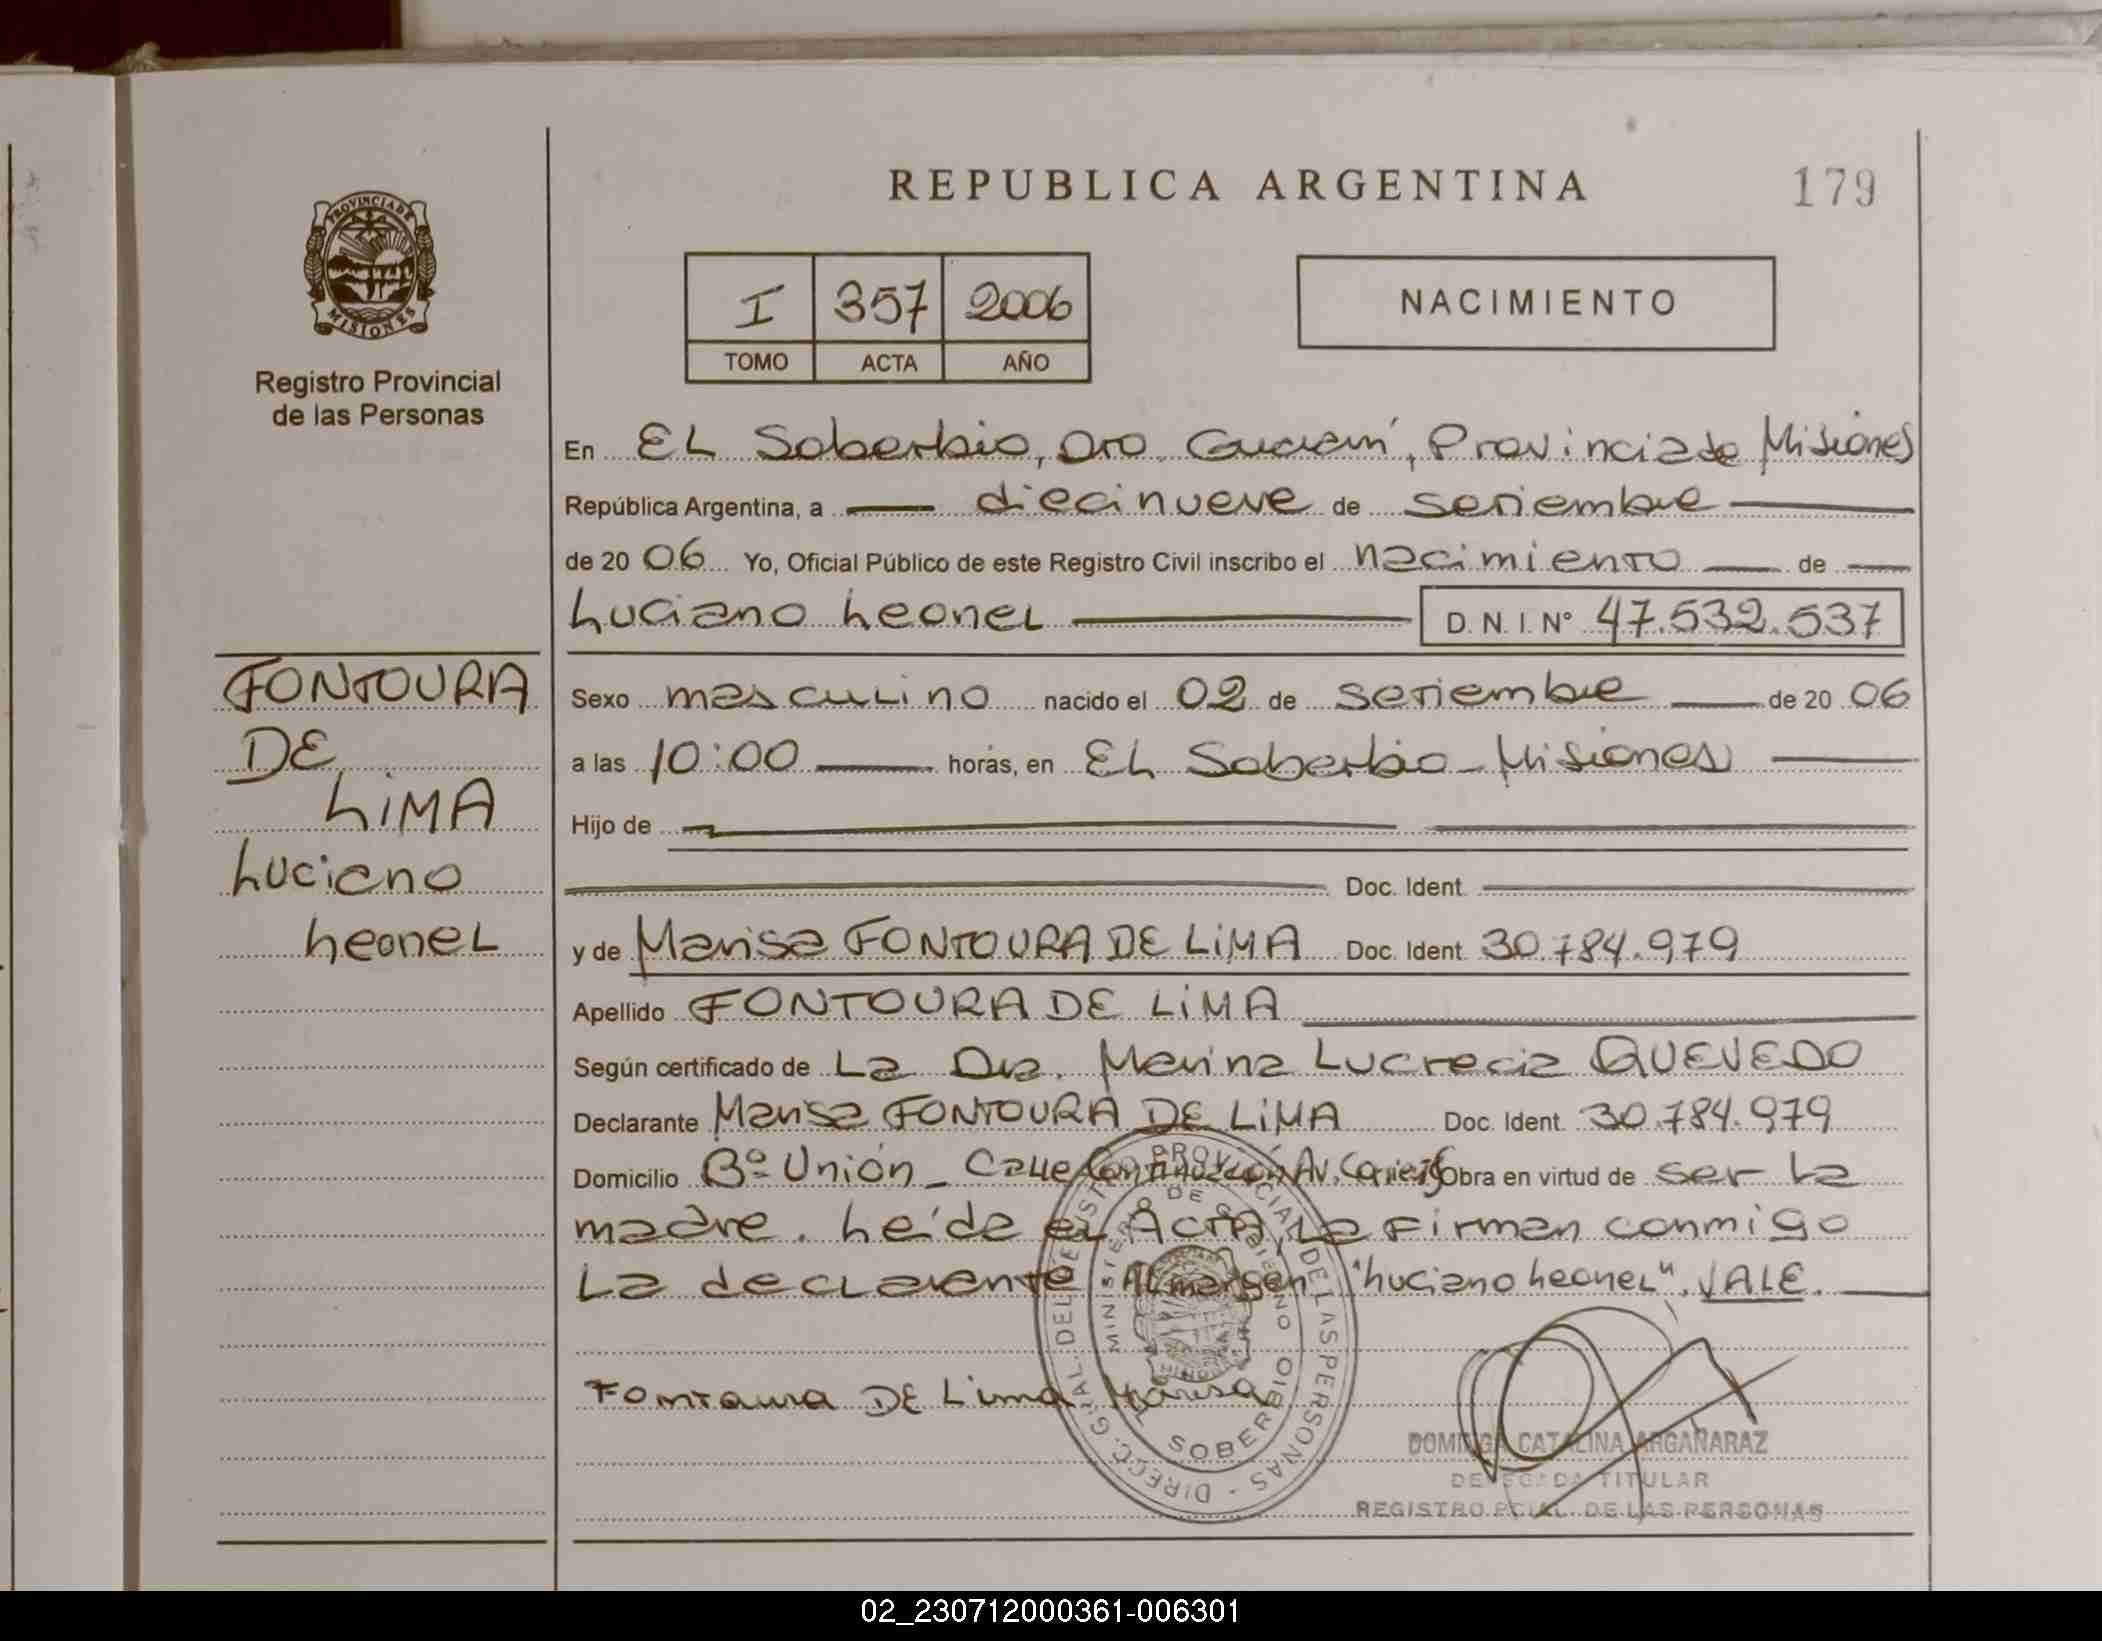 REPUBLICA ARGENTINA
179
PROVINCIA DE
MISIONES
Registro Provincial
de las Personas
I 357 2006
TOMO ACTA AÑO
NACIMIENTO
En EL Soberbio, Dto. Guaraní, Provincia de Misiones
República Argentina, a diecinueve de setiembre
de 20 06 Yo, Oficial Público de este Registro Civil inscribo el nacimiento de
Luciano Leonel D. N. I. Nº 47.532.537
FONTOURA
DE
LiMA
Luciano
Leonel
Sexo masculino nacido el 02 de setiembre de 20 06
a las 10:00 horas, en EL Soberbio - Misiones
Hijo de
Doc. Ident.
y de Marisa FONTOURA DE LiMA Doc. Ident. 30.784.979
Apellido FONTOURA DE LiMA
Según certificado de La Dra. Marina Lucrecia QUEVEDO
Declarante Marisa FONTOURA DE LiMA Doc. Ident. 30.784.979
Domicilio Bº Unión - Calle Continuación Av. Obra en virtud de ser La
madre. Leída el Acta, La Firman conmigo
La declarante Al margen "Luciano Leonel". VALE.
Fontoura DE Lima Marisa
DIRECC. GRAL. DEL REGISTRO PROVINCIAL DE LAS PERSONAS -
MINISTERIO DE GOBIERNO
EL SOBERBIO
DOMINGA CATALINA ARGAÑARAZ
DELEGADA TITULAR
REGISTRO PCIAL. DE LAS PERSONAS
02_230712000361-006301